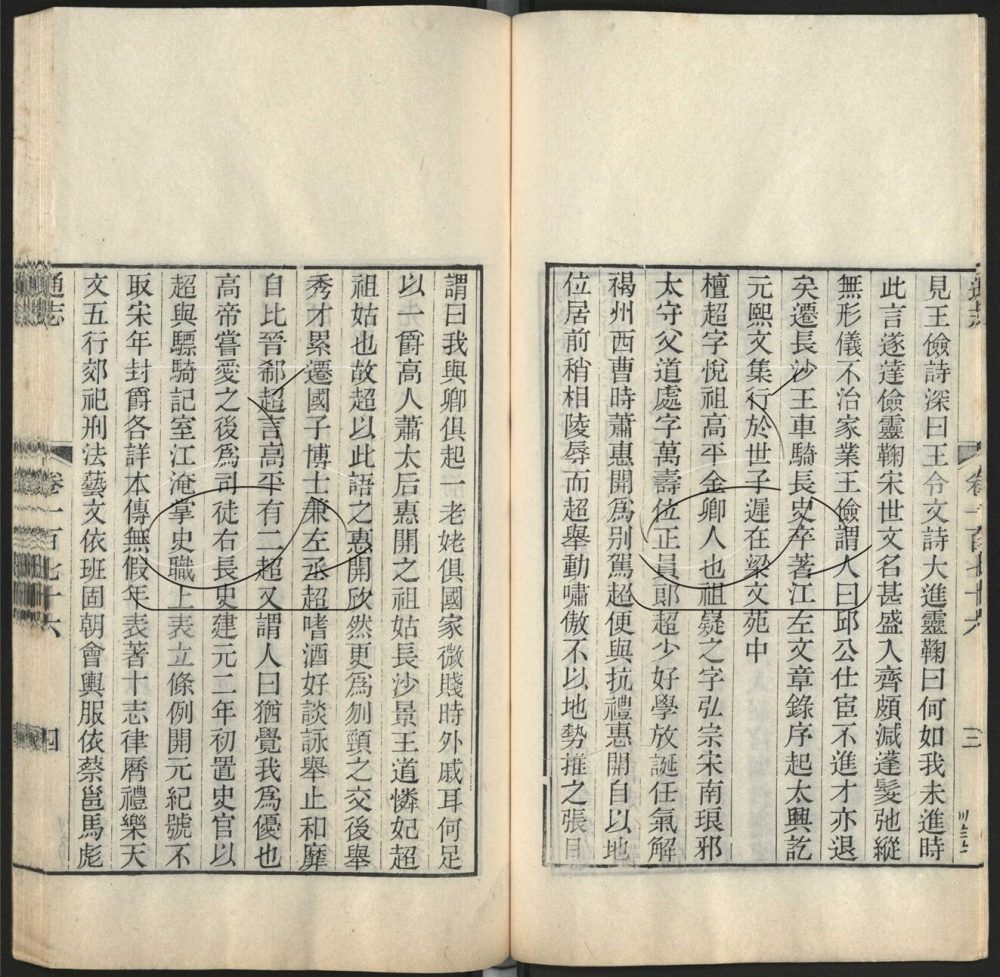 見王儉詩深曰王令文詩大進靈鞠曰何如我未進時
此言遂達儉靈鞠宋世文名甚盛入齊頗減蓬髮弛縱
無形儀不治家業王儉謂人曰邱公仕宦不進才亦退
矣遷長沙王車騎長史卒著江左文章錄序起太興訖
元熙文集行於世子遲在梁文苑中
檀超字悅祖高平金鄉人也祖嶷之字弘宗宋南琅邪
太守父道處字萬壽位正員郎超少好學放誕任氣解
褐州西曹時蕭惠開為別駕超便與抗禮惠開自以地
位居前稍相陵辱而超舉動嘯傲不以地勢推之張目
謂曰我與卿俱起一老姥俱國家微賤時外戚耳何足
以一爵高人蕭太后惠開之祖姑長沙景王道憐妃超
祖姑也故超以此語之惠開欣然更為刎頸之交後舉
秀才累遷國子博士兼左丞超嗜酒好談詠舉止和靡
自比晉郗超言高平有二超又謂人曰猶覺我為優也
高帝嘗愛之後為司徒右長史建元二年初置史官以
超與驃騎記室江淹掌史職上表立條例開元紀號不
取宋年封爵各詳本傳無假年表著十志律曆禮樂天
文五行郊祀刑法藝文依班固朝會輿服依蔡邕馬彪
通志 卷一百七十六 四